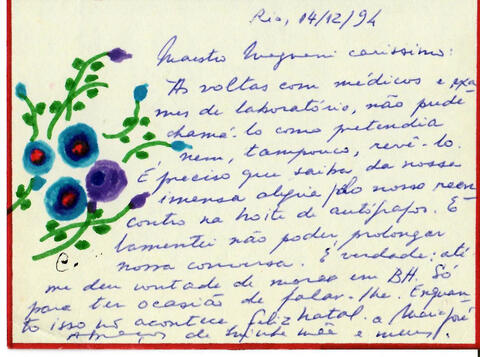 Rio, 14/12/94
Maestro Magnani caríssimo:
As voltas com médicos e exa-
mes de laboratório, não pude
chamá-lo como pretendia
nem, tampouco, revê-lo.
É preciso que saiba da nossa
imensa alegria do nosso reen-
contro na noite de autógrafos. E
lamentei não poder prolongar
nossa conversa. É verdade: até
me deu vontade de morar em BH. Só
para ter ocasião de falar-lhe. Enquan-
to isso não acontece feliz Natal. a Maria José
Abraços de minha mãe e meus.
C.